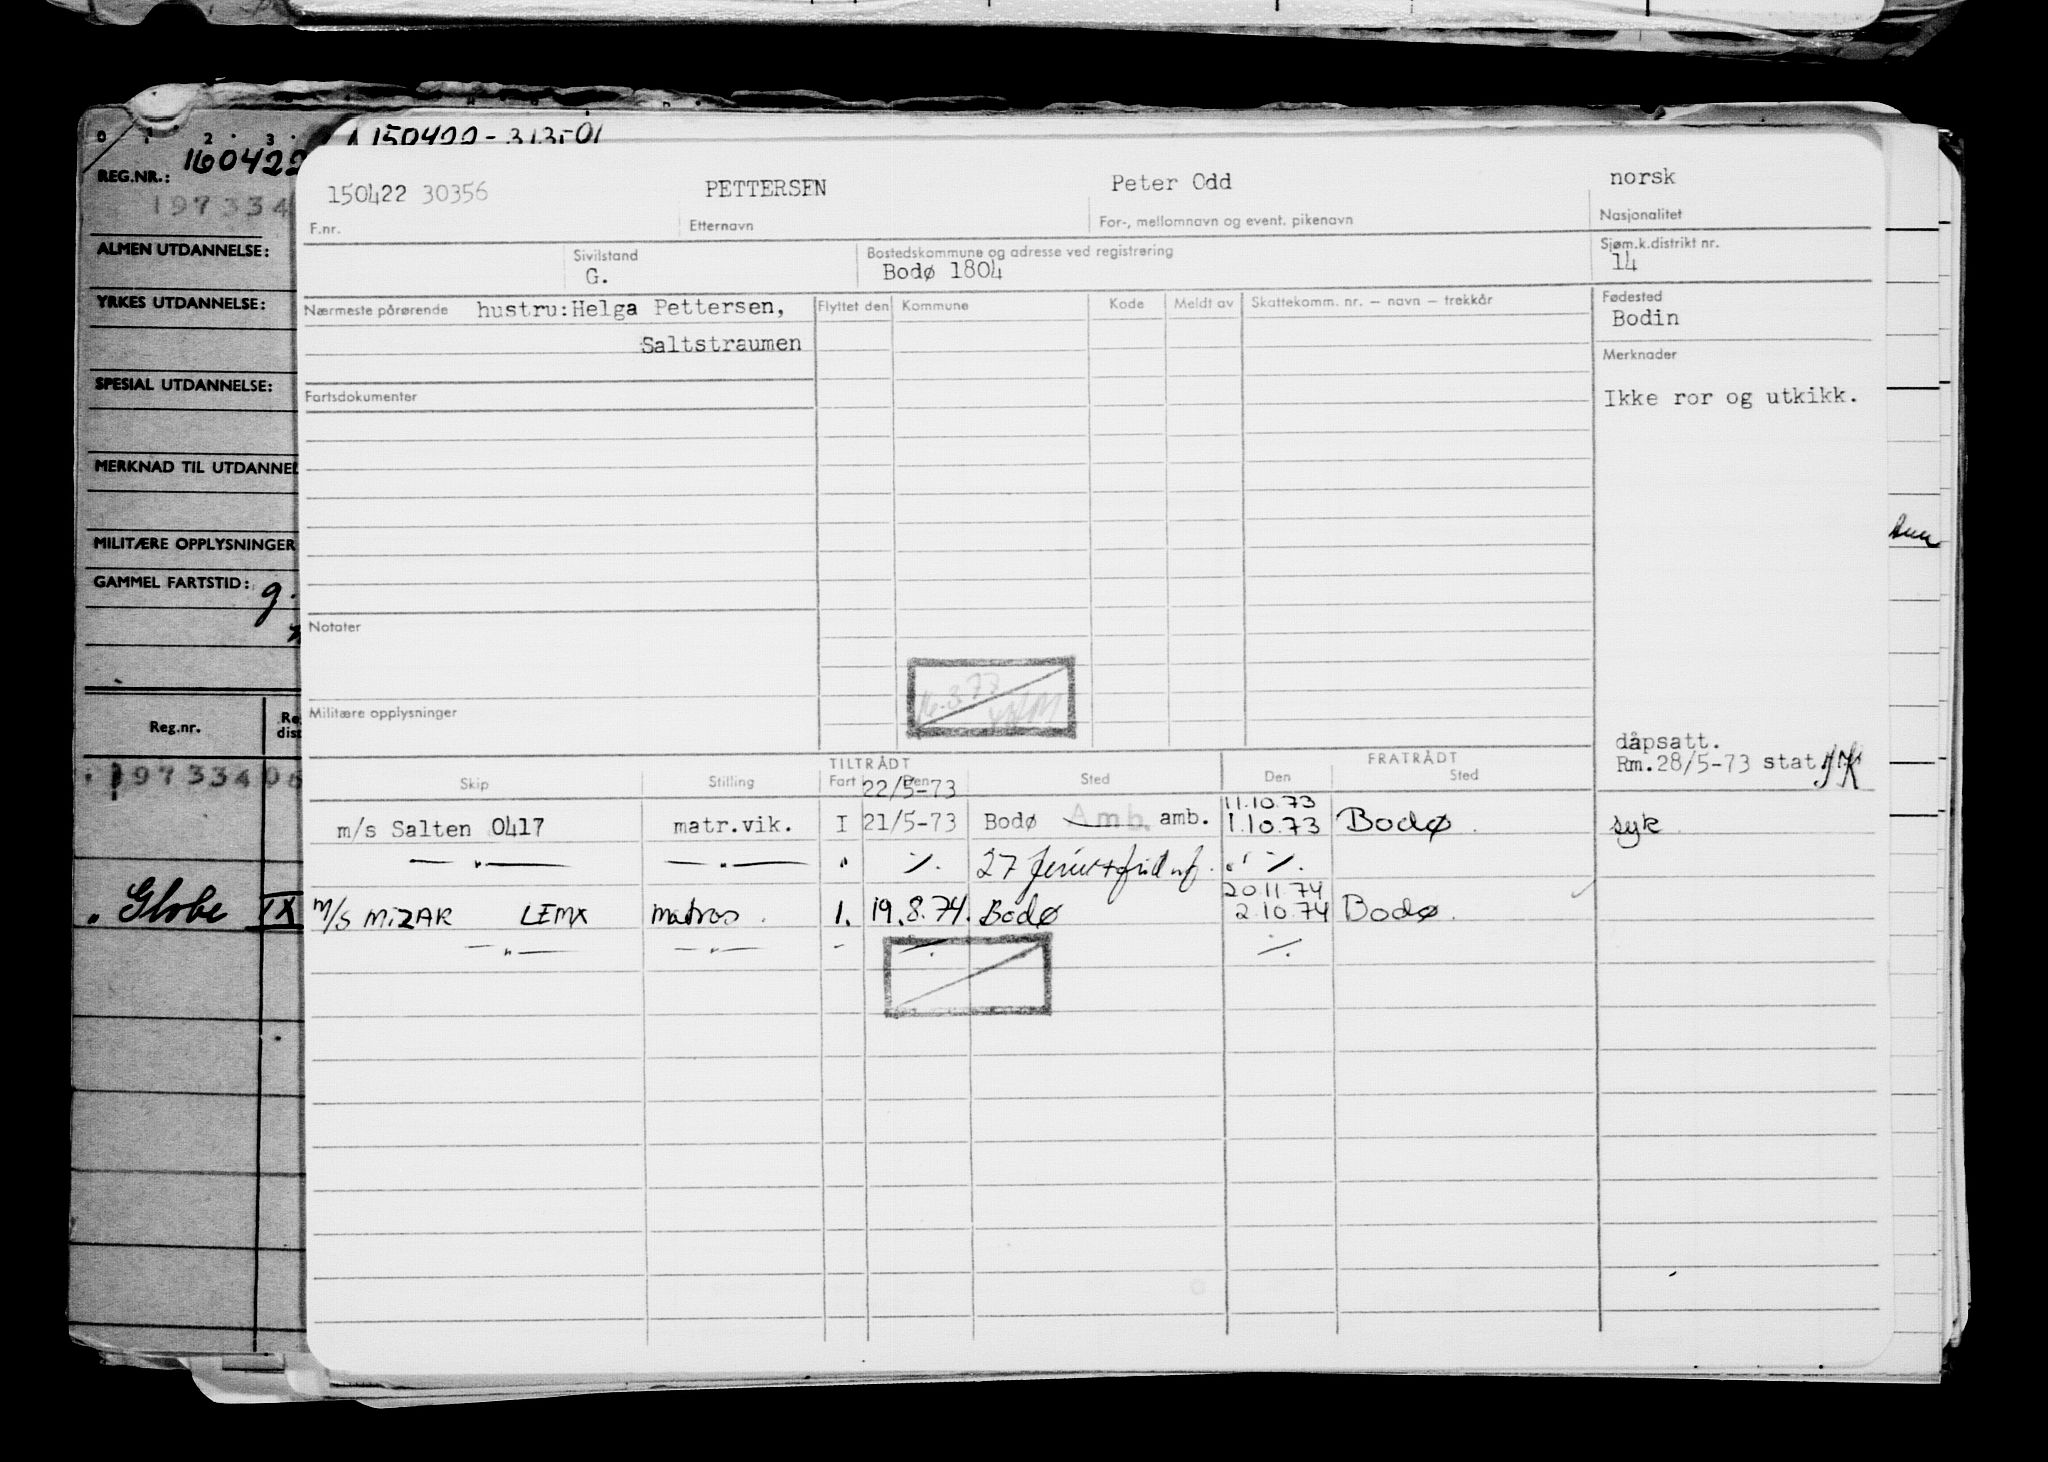 0 1 2 3
REG.NR.: 160422
197334
ALMEN UTDANNELSE:
YRKES UTDANNELSE:
SPESIAL UTDANNELSE:
MERKNAD TIL UTDANNEL
MILITÆRE OPPLYSNINGER
GAMMEL FARTSTID: g.
Reg.nr.
197334 06
" Globe IX
150422 30356 PETTERSEN Peter Odd norsk
F.nr. Etternavn For-, mellomnavn og event. pikenavn Nasjonalitet
Sivilstand Bostedskommune og adresse ved registrering Sjøm.k.distrikt nr.
G. Bodø 1804 14
Nærmeste pårørende hustru:Helga Pettersen, Flyttet den Kommune Kode Meldt av Skattekomm. nr. — navn — trekkår Fødested
Bodin
Saltstraumen Merknader
Fartsdokumenter Ikke ror og utkikk.
Notater
16.3.73
Militære opplysninger
dåpsatt.
Rm.28/5-73 stat JK
TILTRÅDT FRATRÅDT
Skip Stilling Fart Den Sted Den Sted
22/5-73 11.10.73
m/s Salten 0417 matr.vik. I 21/5-73 Bodø Amb. amb. 1.10.73 Bodø syk
— " — — " — " ./. 27 " ./.
20.11.74
m/s MIZAR LEMX matros. 1. 19.8.74. Bodø 2.10.74 Bodø.
— " — — " — - ./. ./.